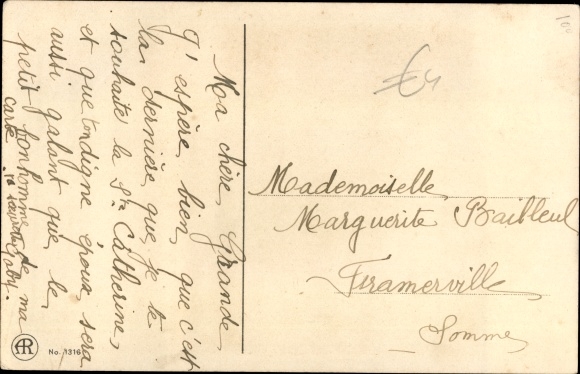 Ma chère Grande,
J'espère bien, que c'est
la dernière que je te
souhaite la Ste Catherine,
et que ton digne époux sera
aussi galant que le
petit bonhomme de ma
carte.
Gaby.
Mademoiselle
Marguerite Bailleul
Framerville
Somme
€4
100
AR
No. 1316